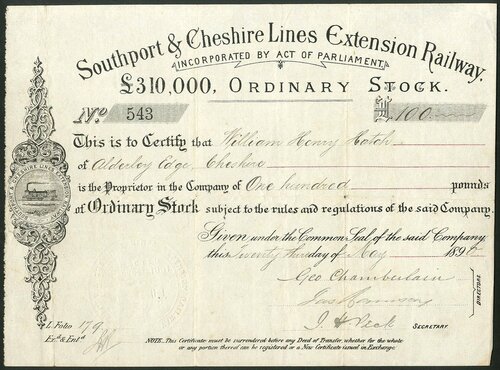 Southport & Cheshire Lines Extension Railway.
INCORPORATED BY ACT OF PARLIAMENT
£310,000, ORDINARY STOCK.
No. 543 £ 100
This is to Certify that William Henry Hatch
of Alderley Edge, Cheshire
is the Proprietor in the Company of One hundred pounds
of Ordinary Stock subject to the rules and regulations of the said Company.
Given under the Common Seal of the said Company
this Twenty third day of May 189
Geo Chamberlain
DIRECTORS
J. H. Peck SECRETARY.
L. Folio 179
Exd. & Entd.
NOTE. This Certificate must be surrendered before any Deed of Transfer, whether for the whole
or any portion thereof can be registered or a New Certificate issued in Exchange.